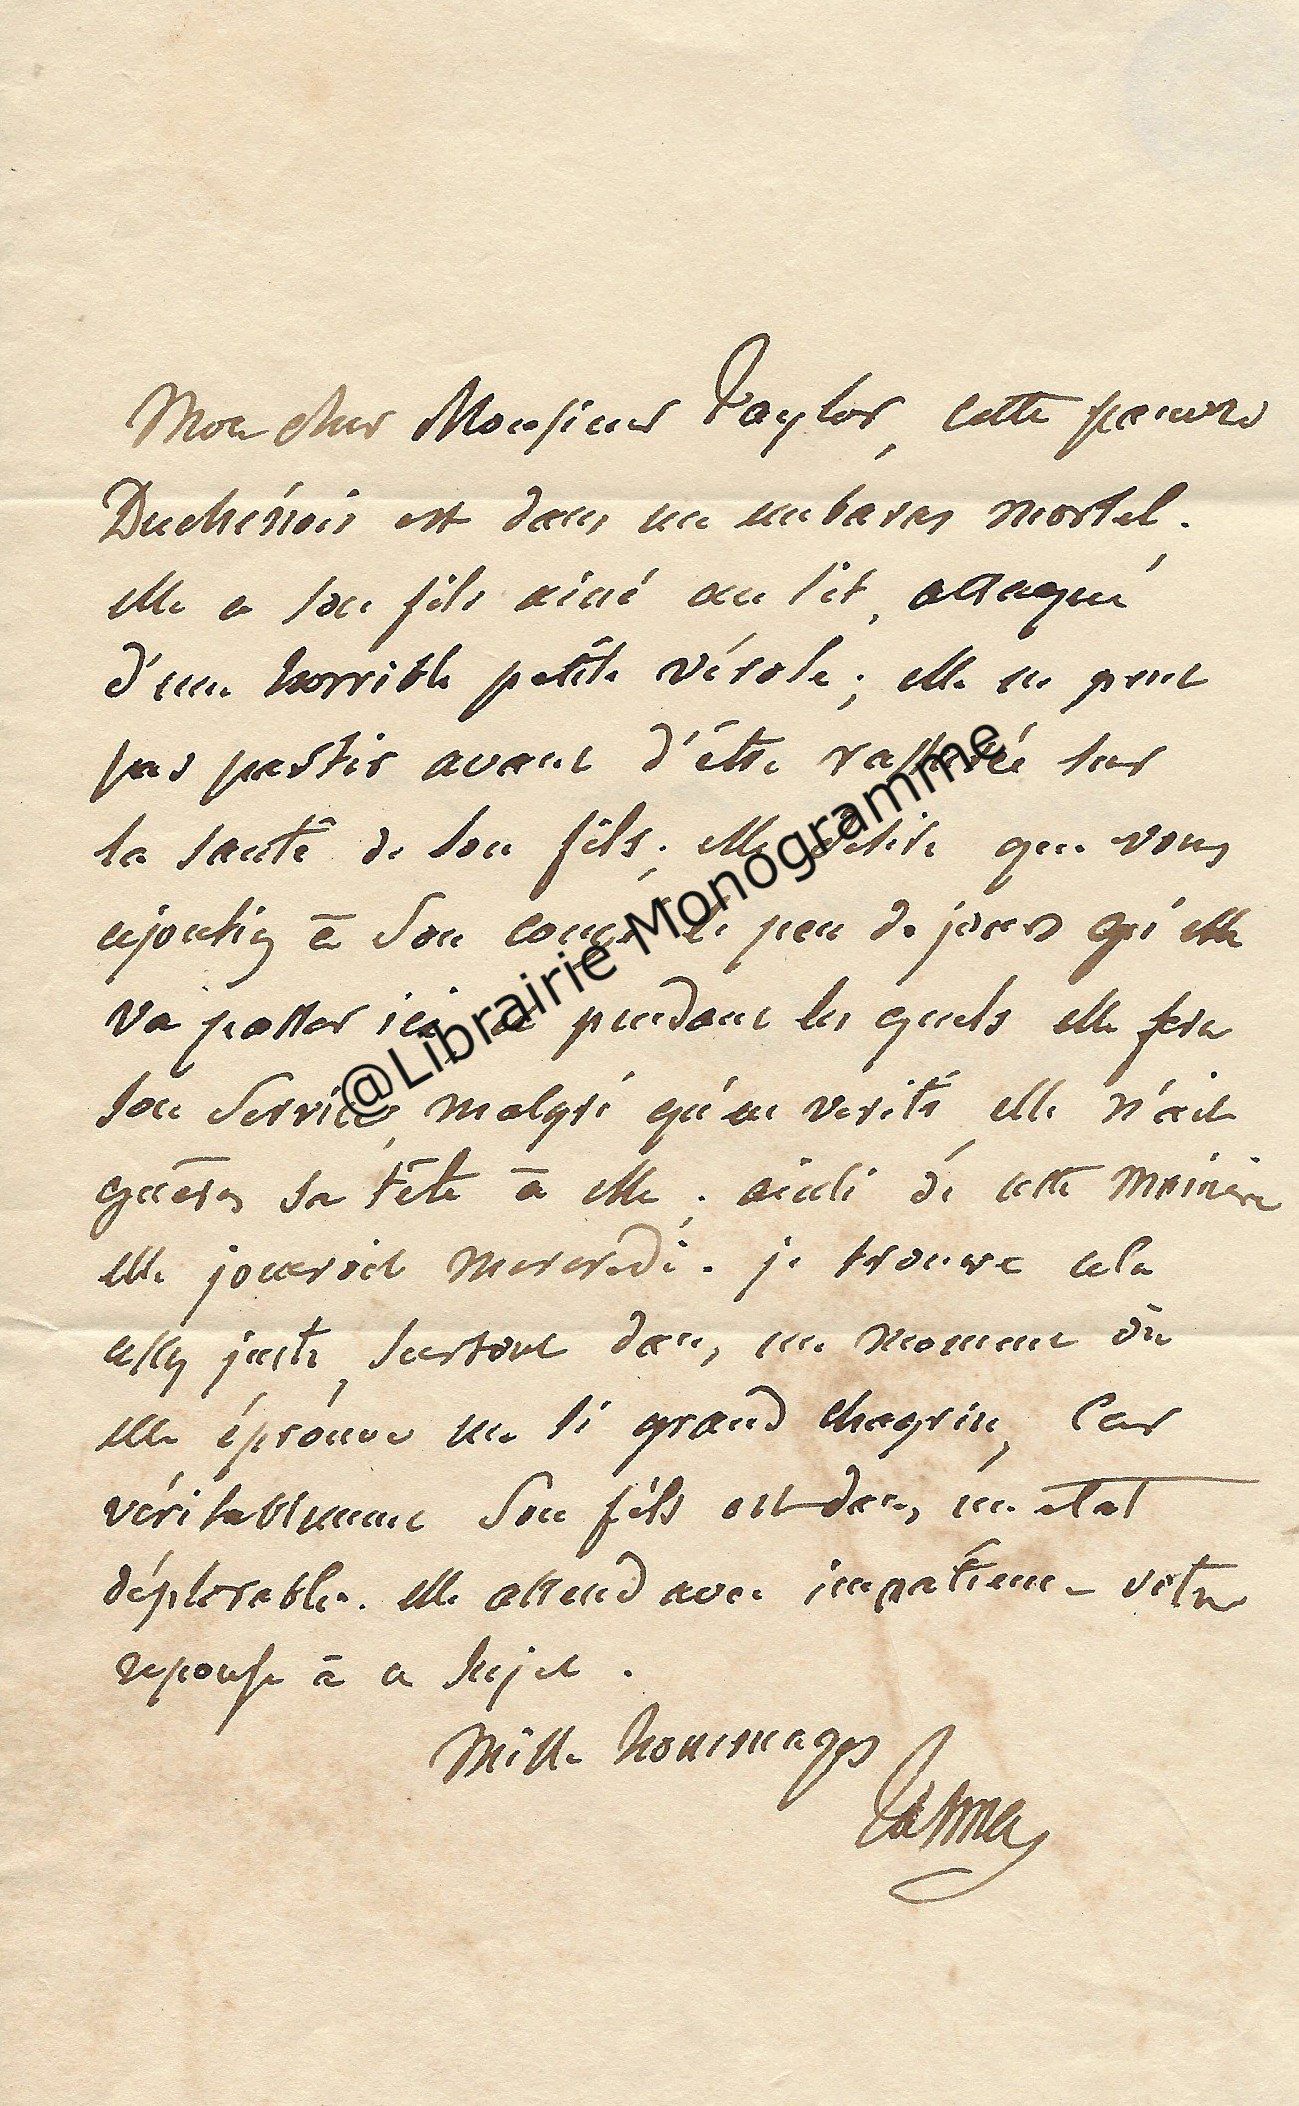 Mon cher Monsieur Taylor, cette pauvre
Duchénois est dans un embaras mortel.
elle a son fils ainé au lit, attaqué
d'une horrible petite vérole; elle ne peut
pas partir avant d'être rassurée sur
la santé de son fils. elle désire que vous
ajoutiez à son congé le peu de jours qu'elle
va passer ici et pendant les quels elle fera
son service, malgré qu'en verité elle n'ait
guères sa tête à elle. ainsi de cette maniere
elle joueroit mercredi. je trouve cela
assez juste, surtout dans un moment où
elle éprouve un si grand chagrin, car
véritablement son fils est dans un etat
déplorable. elle attend avec impatience votre
reponse à ce sujet.
Mille hommages
Talma
@Librairie Monogramme